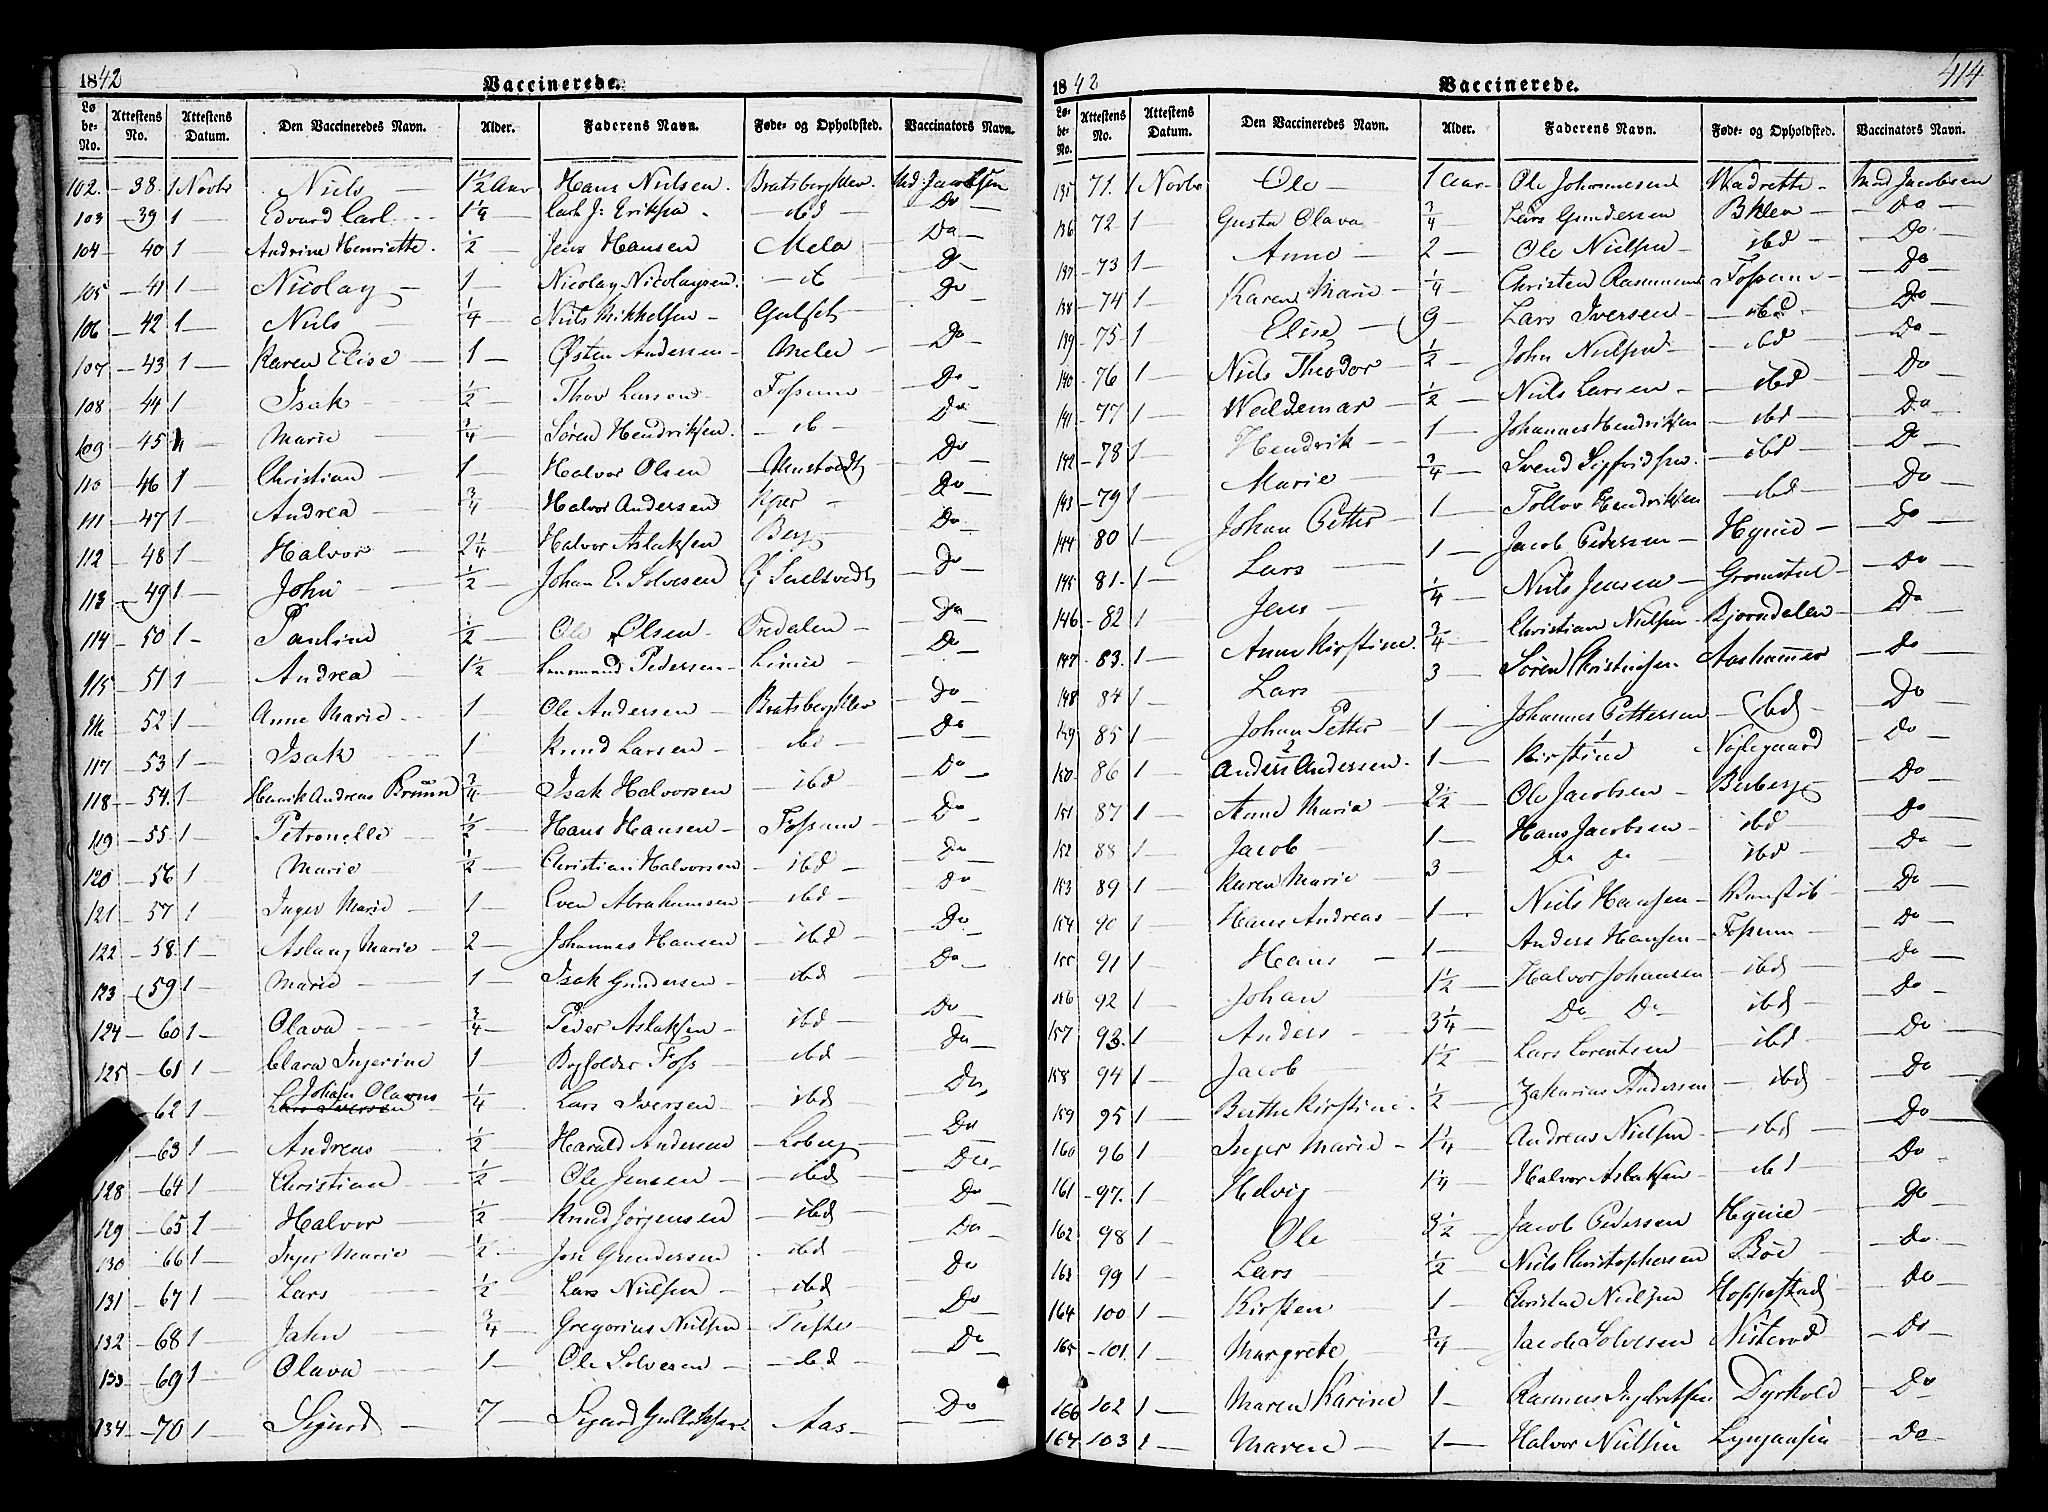 1842 Vaccinerede.
Løbe-No. Attestens No. Attestens Datum. Den Vaccineredes Navn. Alder. Faderens Navn. Føde- og Opholdsted. Vaccinators Navn.
102. 38. 1 Novbr Niels 1 1/2 Aar Hans Nielsen. Bratsbergklev. Md: Jacobsen
103 39 1 Edvard Carl 1 1/4 Carl J: Eriksen ibd Do
104 40 1 Andrine Henriette. 1/2 Jens Hansen Mela Do
105 41 1 Nicolay 1 Nicolay Nicolaysen. ib Do
106 42 1 Niels 1/4 Niels Mikkelsen Gulset Do
107 43 1 Karen Elise 1 Østen Andersen Meler Do
108 44 1 Isak 1/2 Thov Larsen Fossum Do
109 45 1 Marie 3/4 Søren Hendriksen. ib Do
110 46 1 Christian 1 Halvor Olsen Mustvedt Do
111 47 1 Andrea 3/4 Halvor Andersen Do
112 48 1 Halvor 2 1/4 Halvor Aslaksen Berg Do
113 49 1 John 1/2 Johan E. Solvesen Do
114 50 1 Pauline 1/2 Ole Olsen Do
115 51 1 Andrea 1 1/2 Pedersen Linie Do
116 52 1 Anne Marie 1 Ole Andersen Bratsbergklev Do
117 53 1 Isak 1 Knud Larsen ibd Do
118 54. 1 Henrik Andreas Bruun 3/4 Isak Halvorsen ibd Do
119 55. 1 Petronelle 1/2 Hans Hansen Fossum Do
120 56 1 Marie 1/2 Christian Halvorsen ibd Do
121 57 1 Inger Marie 1 Even Abrahamsen ibd Do
122 58. 1 Aslaug Marie 2 Johannes Hansen ibd Do
123 59 1 Marie 1 Isak Gundersen ibd Do
124 60 1 Olava 3/4 Peder Aslaksen ibd Do
125 61 1 Clara Ingerine 1 Bogholder Foss ibd Do
Johan Olavus
62 1 Lars Iversen 1/4 Lars Iversen ibd Do
63 1 Andreas 1/2 Harald Andersen Loberg Do
128 64 1 Christian 1/2 Ole Jensen ibd Do
129 65 1 Halvor 1/2 Knud Jørgensen ibd Do
130 66 1 Inger Marie 1/2 Jon Gundersen ibd Do
131 67 1 Lars 1/2 Lars Nielsen ibd Do
132 68 1 Jahn 3/4 Gregorius Nielsen Do
133 69 1 Olava 1 Ole Solvesen ibd Do
134 70 1 Sigurd 7 Sigurd Aas Do
1842 Vaccinerede. 414
Løbe-No. Attestens No. Attestens Datum. Den Vaccineredes Navn. Alder. Faderens Navn. Føde- og Opholdsted. Vaccinators Navn.
135 71. 1 Novbr Ole 1 Aar Ole Johannesen Wadrette Md Jacobsen
136 72 1 Gusta Olava 3/4 Lars Gundersen Bklev Do
137 73 1 Anne 2 Ole Nielsen ibd Do
138 74 1 Karen Marie 1/4 Christen Rasmussen Fossum Do
139 75 1 Elise 9 Lars Iversen ibd Do
140 76 1 Niels Theodor 1/2 John Nielsen ibd Do
141 77 1 Waldemar 1/2 Niels Larsen ibd Do
142 78 1 Hendrik 1 Johannes Hendriksen ibd Do
143 79 1 Marie 3/4 Svend Sigfridsen ibd Do
144 80 1 Johan Petter 1 Tollov Hendriksen ibd Do
145 81. 1 Lars 1 Jacob Pedersen Hynie Do
146 82 1 Jens 1/4 Niels Jensen Gromstul Do
147 83. 1 Anne Kirstine. 3/4 Christian Nielsen Bjorndalen Do
148 84 1 Lars 3 Søren Christensen Aashammer Do
149 85 1 Johan Petter 1 Johannes Pettersen ibd Do
150 86 1 Anders Andersen. 1 Kirstine Do
151 87 1 Anne Marie 2 1/2 Ole Jacobsen Do
152 88 1 Jacob 1 Hans Jacobsen ibd Do
153 89 1 Karen Marie 3 Do Do ibd Do
154 90 1 Hans Andreas 1 Niels Hansen Do
155 91 1 Hans 1 Anders Hansen Fossum Do
156 92 1 Johan 1 1/2 Halvor Johansen ibd Do
157 93. 1 Anders 3 1/4 Do Do ibd Do
158 94 1 Jacob 1 1/2 Lars Lorentsen ibd Do
159 95 1 Berthe Kirstine 1/2 Zakarias Andersen ibd Do
160 96 1 Inger Marie 1 1/4 Andreas Nielsen ibd Do
161 97. 1 Helvig 1 1/4 Halvor Aslaksen ibd Do
162 98 1 Ole 3 1/2 Jacob Pedersen Hynie Do
163 99 1 Lars 1/2 Niels Christophersen Böe Do
164 100 1 Kirsten 1 Christen Nielsen Hoppestad Do
165 101. 1 Margrete 3/4 Jacob Solvesen Nisterød Do
166 102 1 Maren Karine 1 Rasmus Ingebretsen Dyrkold Do
167 103 1 Maren 1 Halvor Nielsen Do